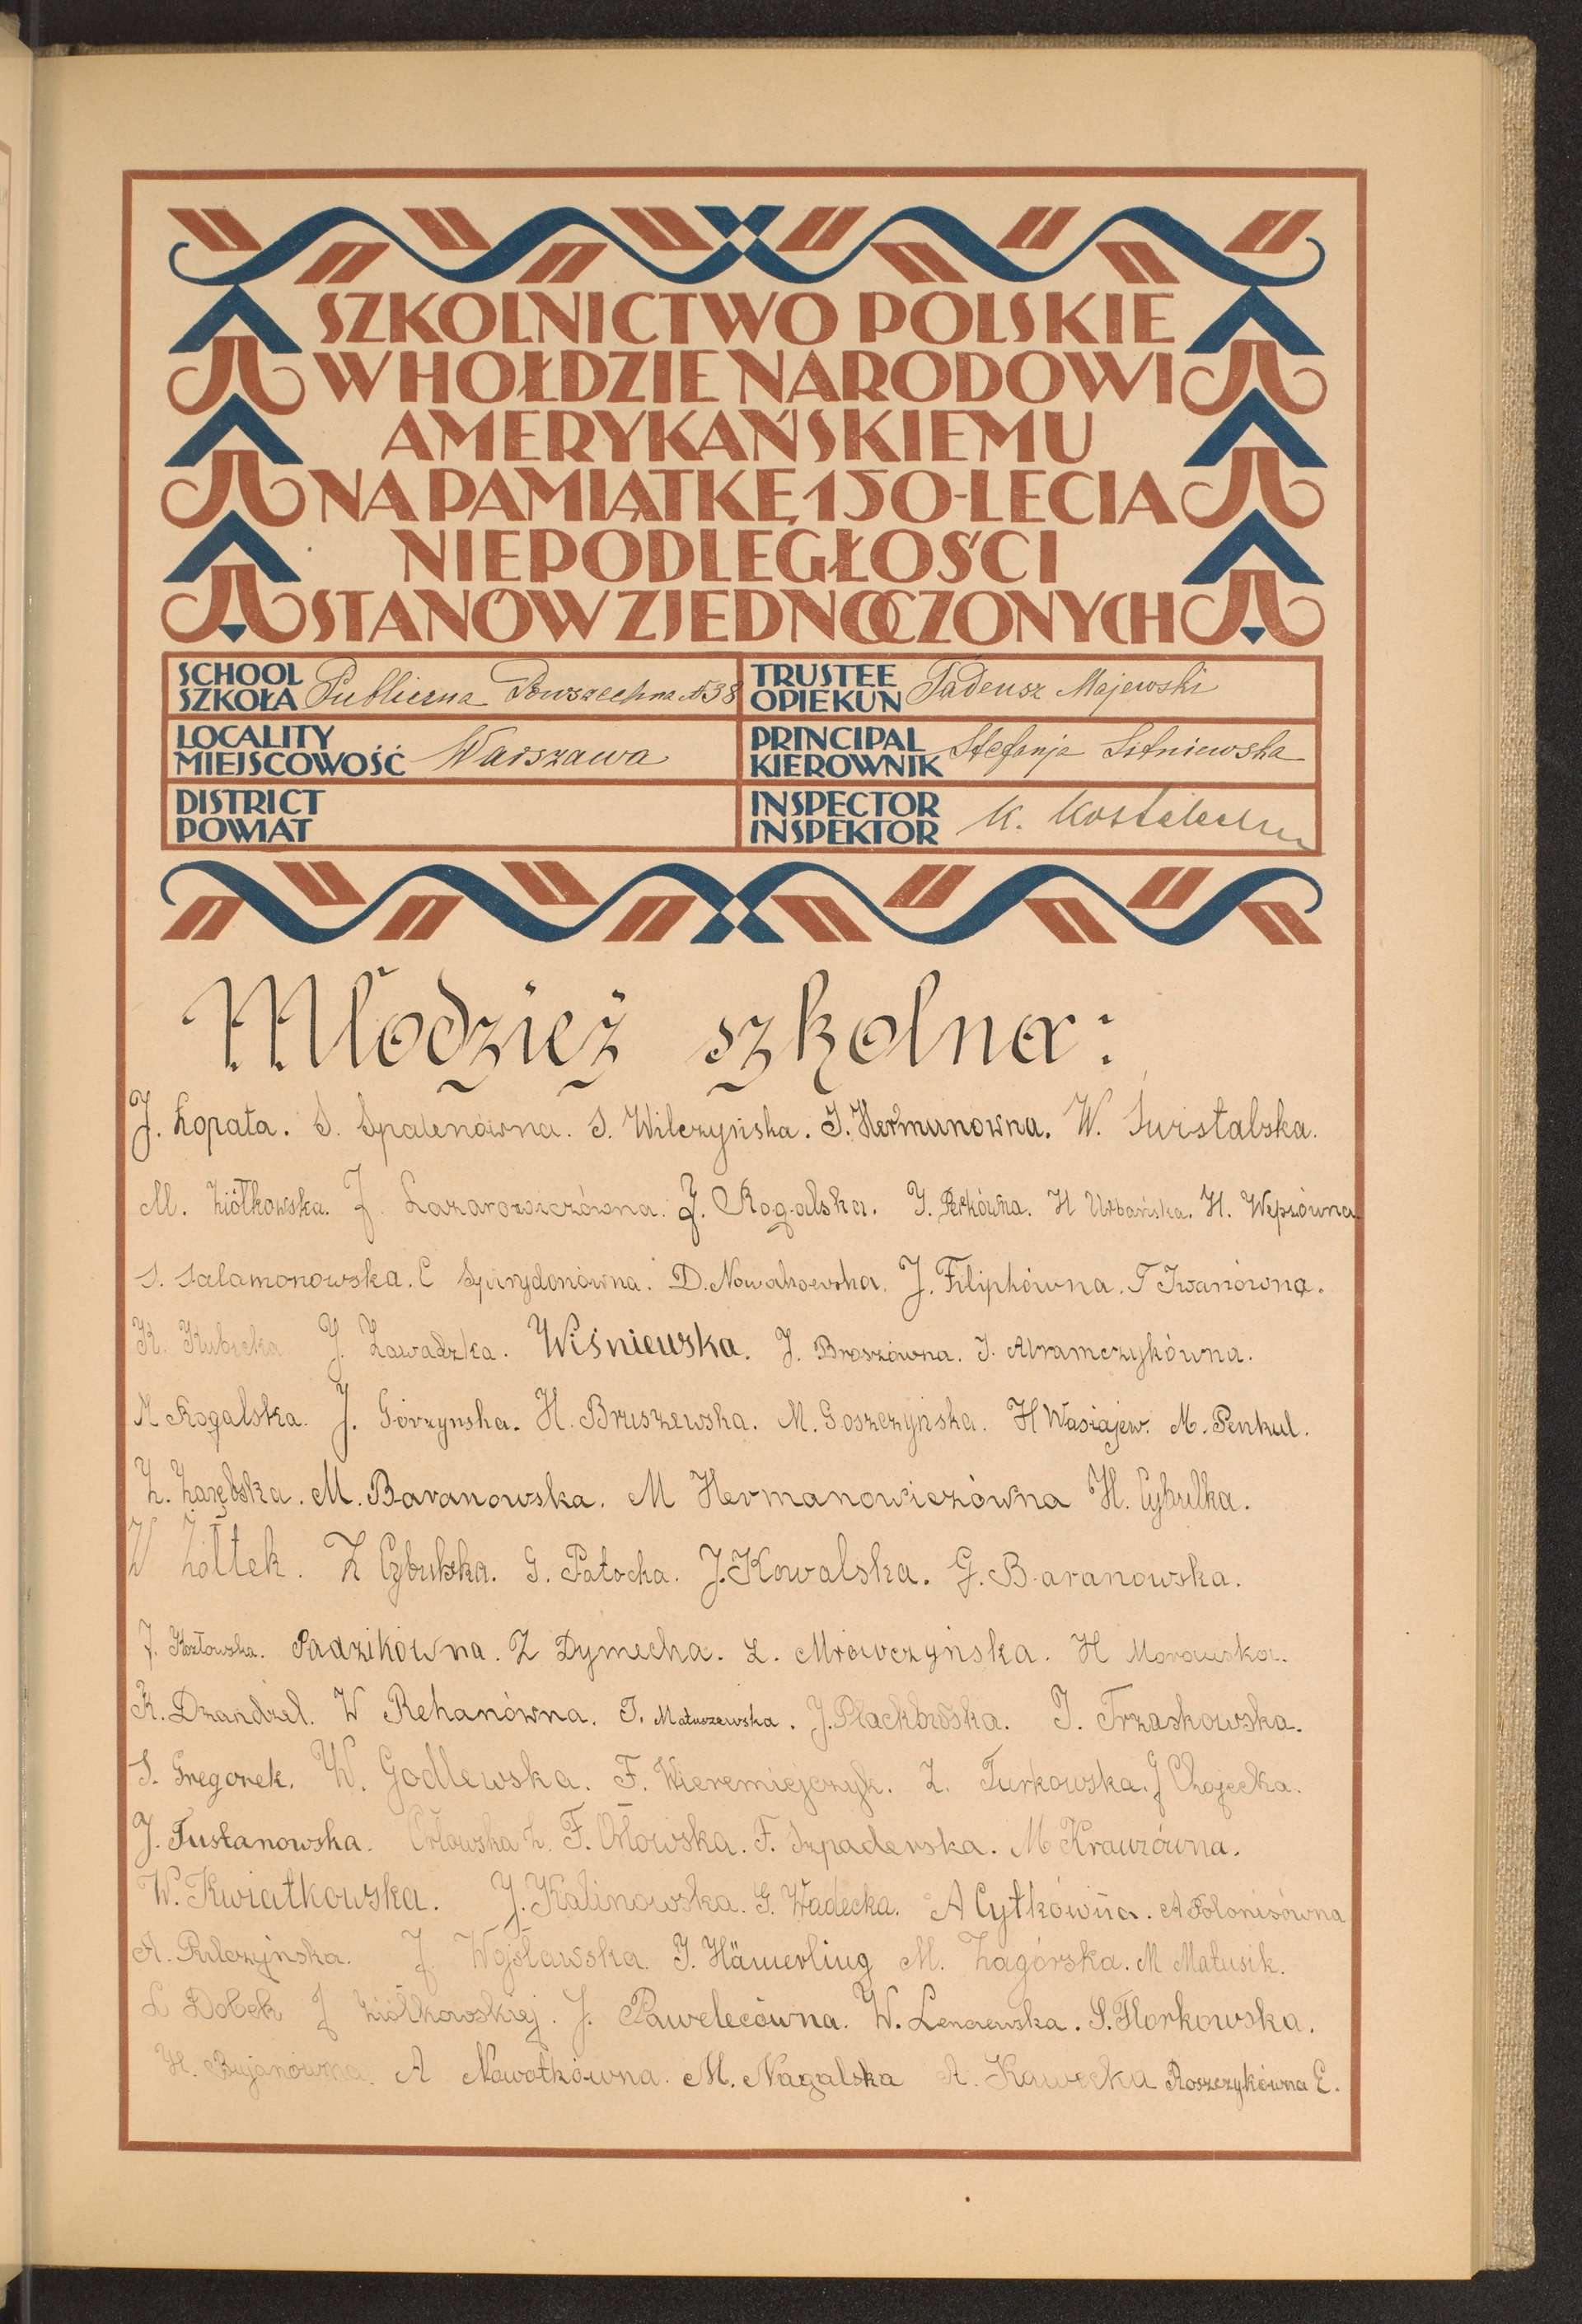 SZKOLNICTWO POLSKIE
W HOŁDZIE NARODOWI
AMERYKAŃSKIEMU
NA PAMIĄTKĘ 150-LECIA
NIEPODLEGŁOŚCI
STANÓW ZJEDNOCZONYCH
SCHOOL
SZKOŁA Publiczna Powszechna № 38
TRUSTEE
OPIEKUN Tadeusz Majewski
LOCALITY
MIEJSCOWOŚĆ Warszawa
PRINCIPAL
KIEROWNIK Stefanja Sitniewska
DISTRICT
POWIAT
INSPECTOR
INSPEKTOR K.
Młodzież szkolna:
J. Łopata. S. Spalenówna. S. Wilczyńska. J. Hermanowna. W. Świstalska.
M. Ziółkowska. J. Lazarowiczówna. J. Rogalska. J. Perkówna. H Urbańska. H. Wepzówna.
S. Salamonowska. C Spirydonówna. D. Nowakowska. J. Filipkówna. T Iwanówna.
K. Kubicka J. Zawadzka. Wiśniewska. J. Broszówna. J. Abramczykówna.
M Rogalska. J. Górzynska. H. Bruszewska. M. Goszczyńska. H Wasiajew. M. Penkul.
Z. Zarębska. M. Baranowska. M Hermanowiczówna H. Cybulka.
W Żółtek. Z Cybulska. G. Patocha. J. Kowalska. G. Baranowska.
J. Kozłowska. Padzikówna. Z Dymecha. Z. Mrówczyńska. H Morawska.
K. Dzandzel. W Rehanówna. T. Matuszewska. J. Plackowska. J. Trzaskowska.
S. Gregorek. W. Godlewska. F. Wieremiejczyk. Z. Turkowska. J Chojecka.
J. Tustanowska. Orłowska Z. F. Orłowska. F. Szpaderska. M Krawzówna.
W. Kwiatkowska. J. Kalinowska. G. Wadecka. A Cytkówna. A Polonisówna
A. Pulczyńska. J Wojsławska J. Hämerling M. Zagórska. M Matusik.
L Dobek J Ziółkowskiej. J. Pawelecówna. W. Lenczewska. S. Florkowska.
H. Bujanówna. A Nawotkówna. M. Nagalska A. Kawecka Roszczykówna E.